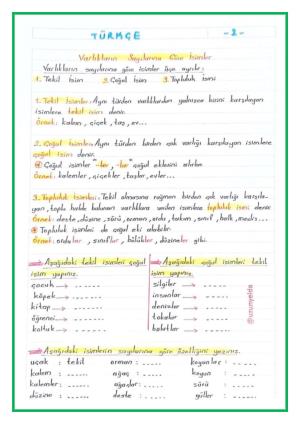 TÜRKÇE -2-
Varlıkların Sayılarına Göre İsimler
Varlıkların sayılarına göre isimler üçe ayrılır:
1. Tekil İsim 2. Çoğul İsim 3. Topluluk İsmi
1. Tekil İsimler: Aynı türden varlıklardan yalnızca birini karşılayan
isimlere tekil isim denir.
Örnek: kalem, çiçek, taş, ev...
2. Çoğul İsimler: Aynı türden birden çok varlığı karşılayan isimlere
çoğul isim denir.
Çoğul isimler "-ler, -lar" çoğul eklerini alırlar.
Örnek: kalemler, çiçekler, taşlar, evler...
3. Topluluk İsimleri: Tekil olmasına rağmen birden çok varlığı karşıla-
yan, toplu halde bulunan varlıklara verilen isimlere topluluk ismi denir.
Örnek: deste, düzine, sürü, orman, ordu, takım, sınıf, halk, meclis...
Topluluk isimleri de çoğul eki alabilir.
Örnek: ordular, sınıflar, bölükler, düzineler gibi.
Aşağıdaki tekil isimleri çoğul
isim yapınız.
çocuk → ......
köpek → ......
kitap → ......
öğrenci → ......
koltuk → ......
Aşağıdaki çoğul isimleri tekil
isim yapınız.
silgiler → ......
insanlar → ......
denizler → ......
tokalar → ......
biletler → ......
@ununyelda
Aşağıdaki isimlerin sayılarına göre özelliğini yazınız.
uçak : tekil orman : ..... koyunlar : .....
kalem : ..... ağaç : ..... koyun : .....
kalemler : ..... ağaçlar : ..... sürü : .....
düzine : ..... deste : ..... güller : .....